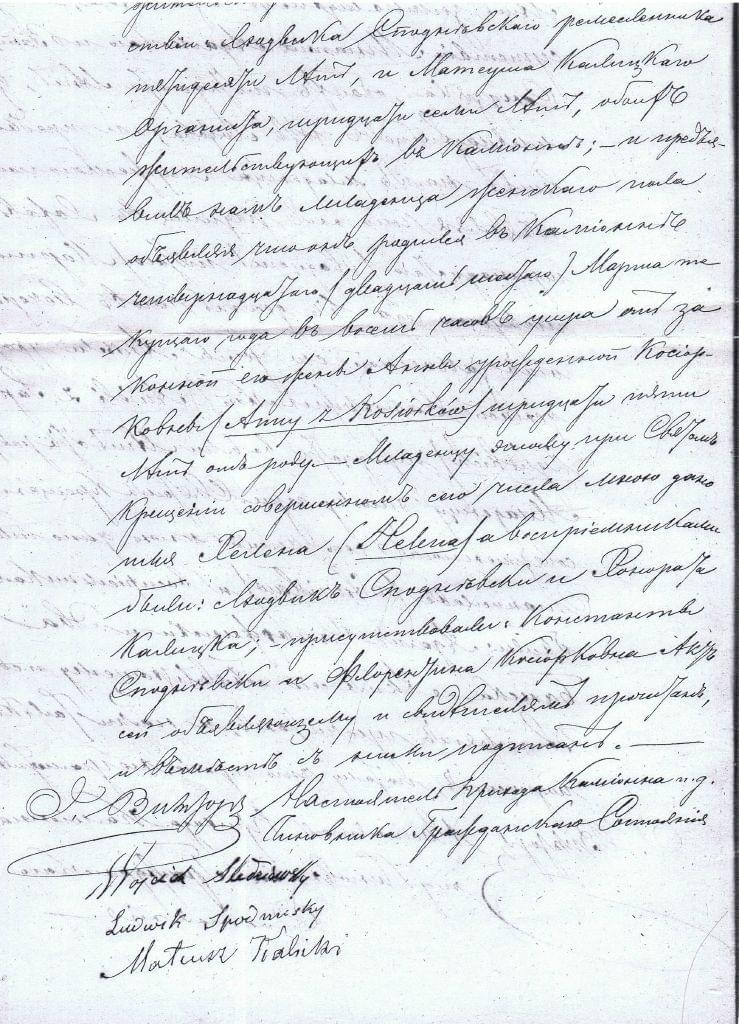 ствіи Людвика Сподневскаго ремесленника
лѣтъ, и Матеуша Калицкаго
Органиста, тридцати семи лѣтъ, обоихъ
жительствующихъ въ Каміоннѣ; – и предъя-
вилъ намъ Младенца женскаго пола
объявляя что онъ родился въ Каміоннѣ
четвернадцатаго (двадцать шестаго) Марта те
кущаго года въ восемь часовъ утра отъ за
конной его жены Анны урожденной Косіор-
ковны (Anny z Kosiorków) тридцати пяти
лѣтъ отъ роду – Младенцу этому при Святомъ
Крещеніи совершенномъ сего числа мною дано
имя Хелена (Helena) а воспріемниками
были: Людвикъ Сподневски и Хонората
Калицка; – присутствовали: Константы
Сподневски и Флорентина Косіорковна Актъ
сей объявляющему и свидѣтелямъ прочитанъ,
и вмѣстѣ съ ними подписанъ. –
Настоятель Прихода Каміонна и. д.
Чиновника Гражданскаго Состоянія
Ludwik Spodniesky